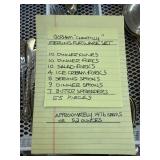 GORHAM "CHANTILLY"
STERLING FLATWARE SET
10 DINNER KNIVES
10 DINNER FORKS
10 SALAD FORKS
4 ICE CREAM FORKS
8 SERVING SPOONS
9 DINNER SPOONS
7 BUTTER SPREADERS
55 PIECES
APPROXIMATELY 1976 GRAMS
OR 62 OUNCES